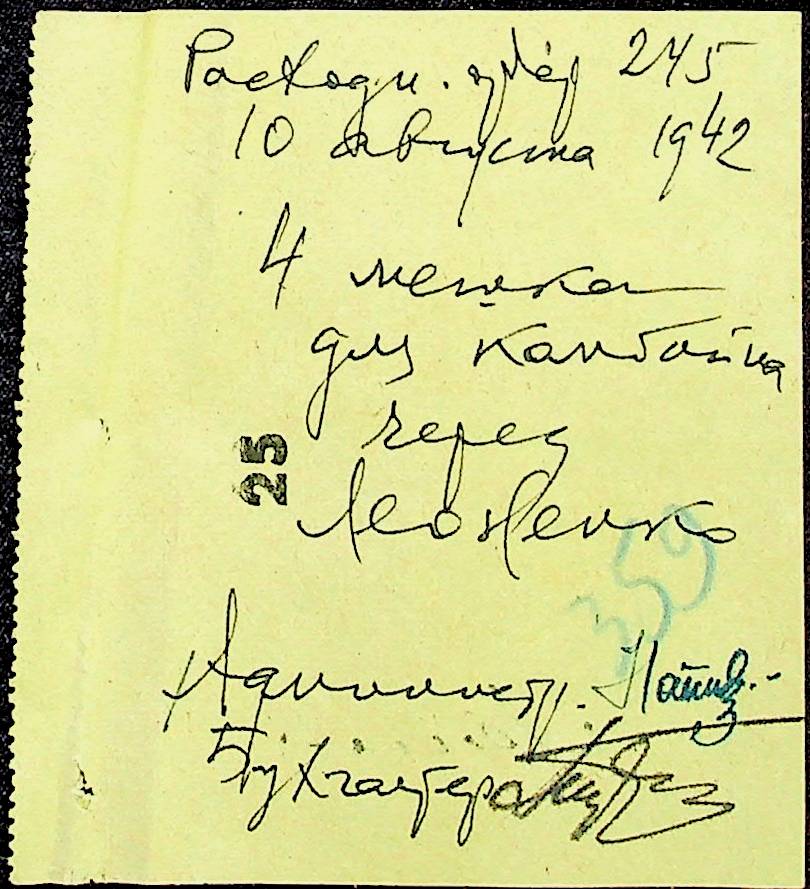 Расходн. ордер 245
10 августа 1942
4 мешка
для канбайна
через
Леоненко
25
359
Администр.
Бухгалтер